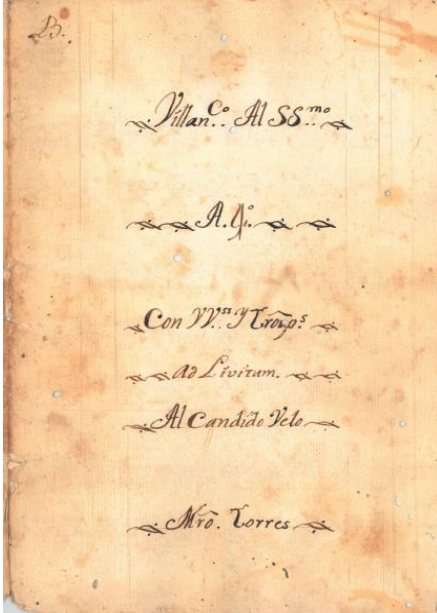 B.
Villan.co Al SS.mo
A.4.º
Con VV.s y Tromp.s
ad Livitum.
Al Candido Velo
Mro. Torres